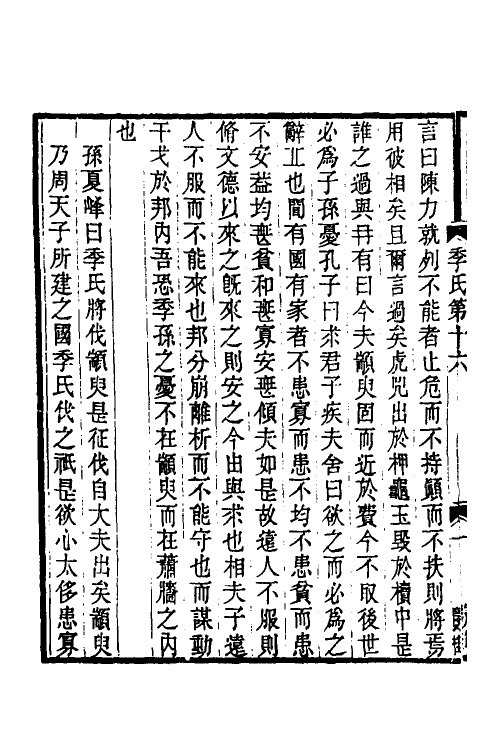 季氏第十六
一
言曰陳力就列不能者止危而不持顚而不扶則將焉
用彼相矣且爾言過矣虎兕出於柙龜玉毁於櫝中是
誰之過與冉有曰今夫顓臾固而近於費今不取後世
必爲子孫憂孔子曰求君子疾夫舍曰欲之而必爲之
辭丘也聞有國有家者不患寡而患不均不患貧而患
不安葢均無貧和無寡安無傾夫如是故遠人不服則
脩文德以來之旣來之則安之今由與求也相夫子遠
人不服而不能來也邦分崩離析而不能守也而謀動
干戈於邦內吾恐季孫之憂不在顓臾而在蕭牆之內
也
孫夏峰曰季氏將伐顓臾是征伐自大夫出矣顓臾
乃周天子所建之國季氏伐之祇是欲心太侈患寡